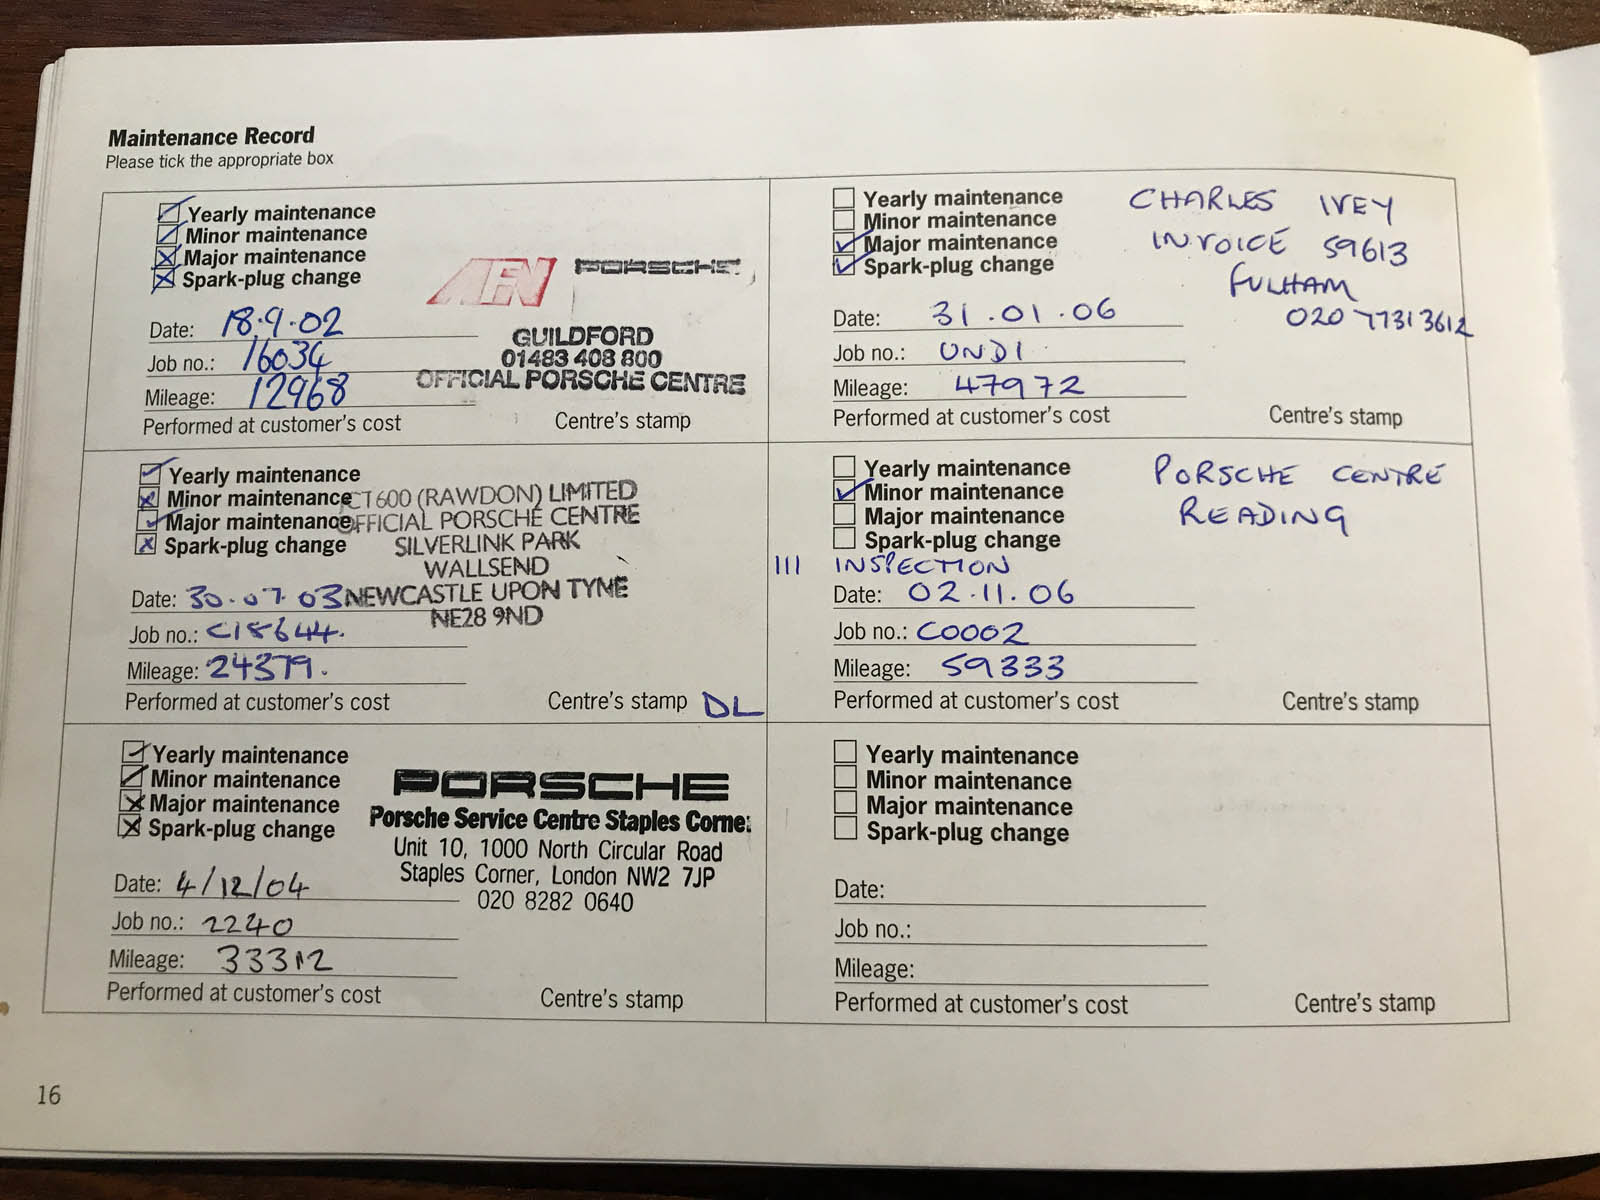 Maintenance Record
Please tick the appropriate box
Yearly maintenance
Minor maintenance
Major maintenance
Spark-plug change
AFN PORSCHE
GUILDFORD
01483 408 800
OFFICIAL PORSCHE CENTRE
Date: 18.9.02
Job no.: 16034
Mileage: 12968
Performed at customer's cost
Centre's stamp
Yearly maintenance
Minor maintenance
Major maintenance
Spark-plug change
CHARLES IVEY
INVOICE 59613
FULHAM
020 77313612
Date: 31.01.06
Job no.: UNDI
Mileage: 47972
Performed at customer's cost
Centre's stamp
Yearly maintenance
Minor maintenance
Major maintenance
Spark-plug change
CT600 (RAWDON) LIMITED
OFFICIAL PORSCHE CENTRE
SILVERLINK PARK
WALLSEND
NEWCASTLE UPON TYNE
NE28 9ND
Date: 30.07.03
Job no.: C18644.
Mileage: 24379.
Performed at customer's cost
Centre's stamp DL
Yearly maintenance
Minor maintenance
Major maintenance
Spark-plug change
PORSCHE CENTRE
READING
III INSPECTION
Date: 02.11.06
Job no.: C0002
Mileage: 59333
Performed at customer's cost
Centre's stamp
Yearly maintenance
Minor maintenance
Major maintenance
Spark-plug change
PORSCHE
Porsche Service Centre Staples Corner
Unit 10, 1000 North Circular Road
Staples Corner, London NW2 7JP
020 8282 0640
Date: 4/12/04
Job no.: 2240
Mileage: 33312
Performed at customer's cost
Centre's stamp
Yearly maintenance
Minor maintenance
Major maintenance
Spark-plug change
Date:
Job no.:
Mileage:
Performed at customer's cost
Centre's stamp
16